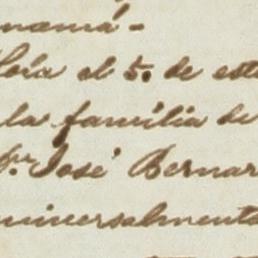 namá-
el 5. de este
la familia de
Dn. José Bernar
universalmente